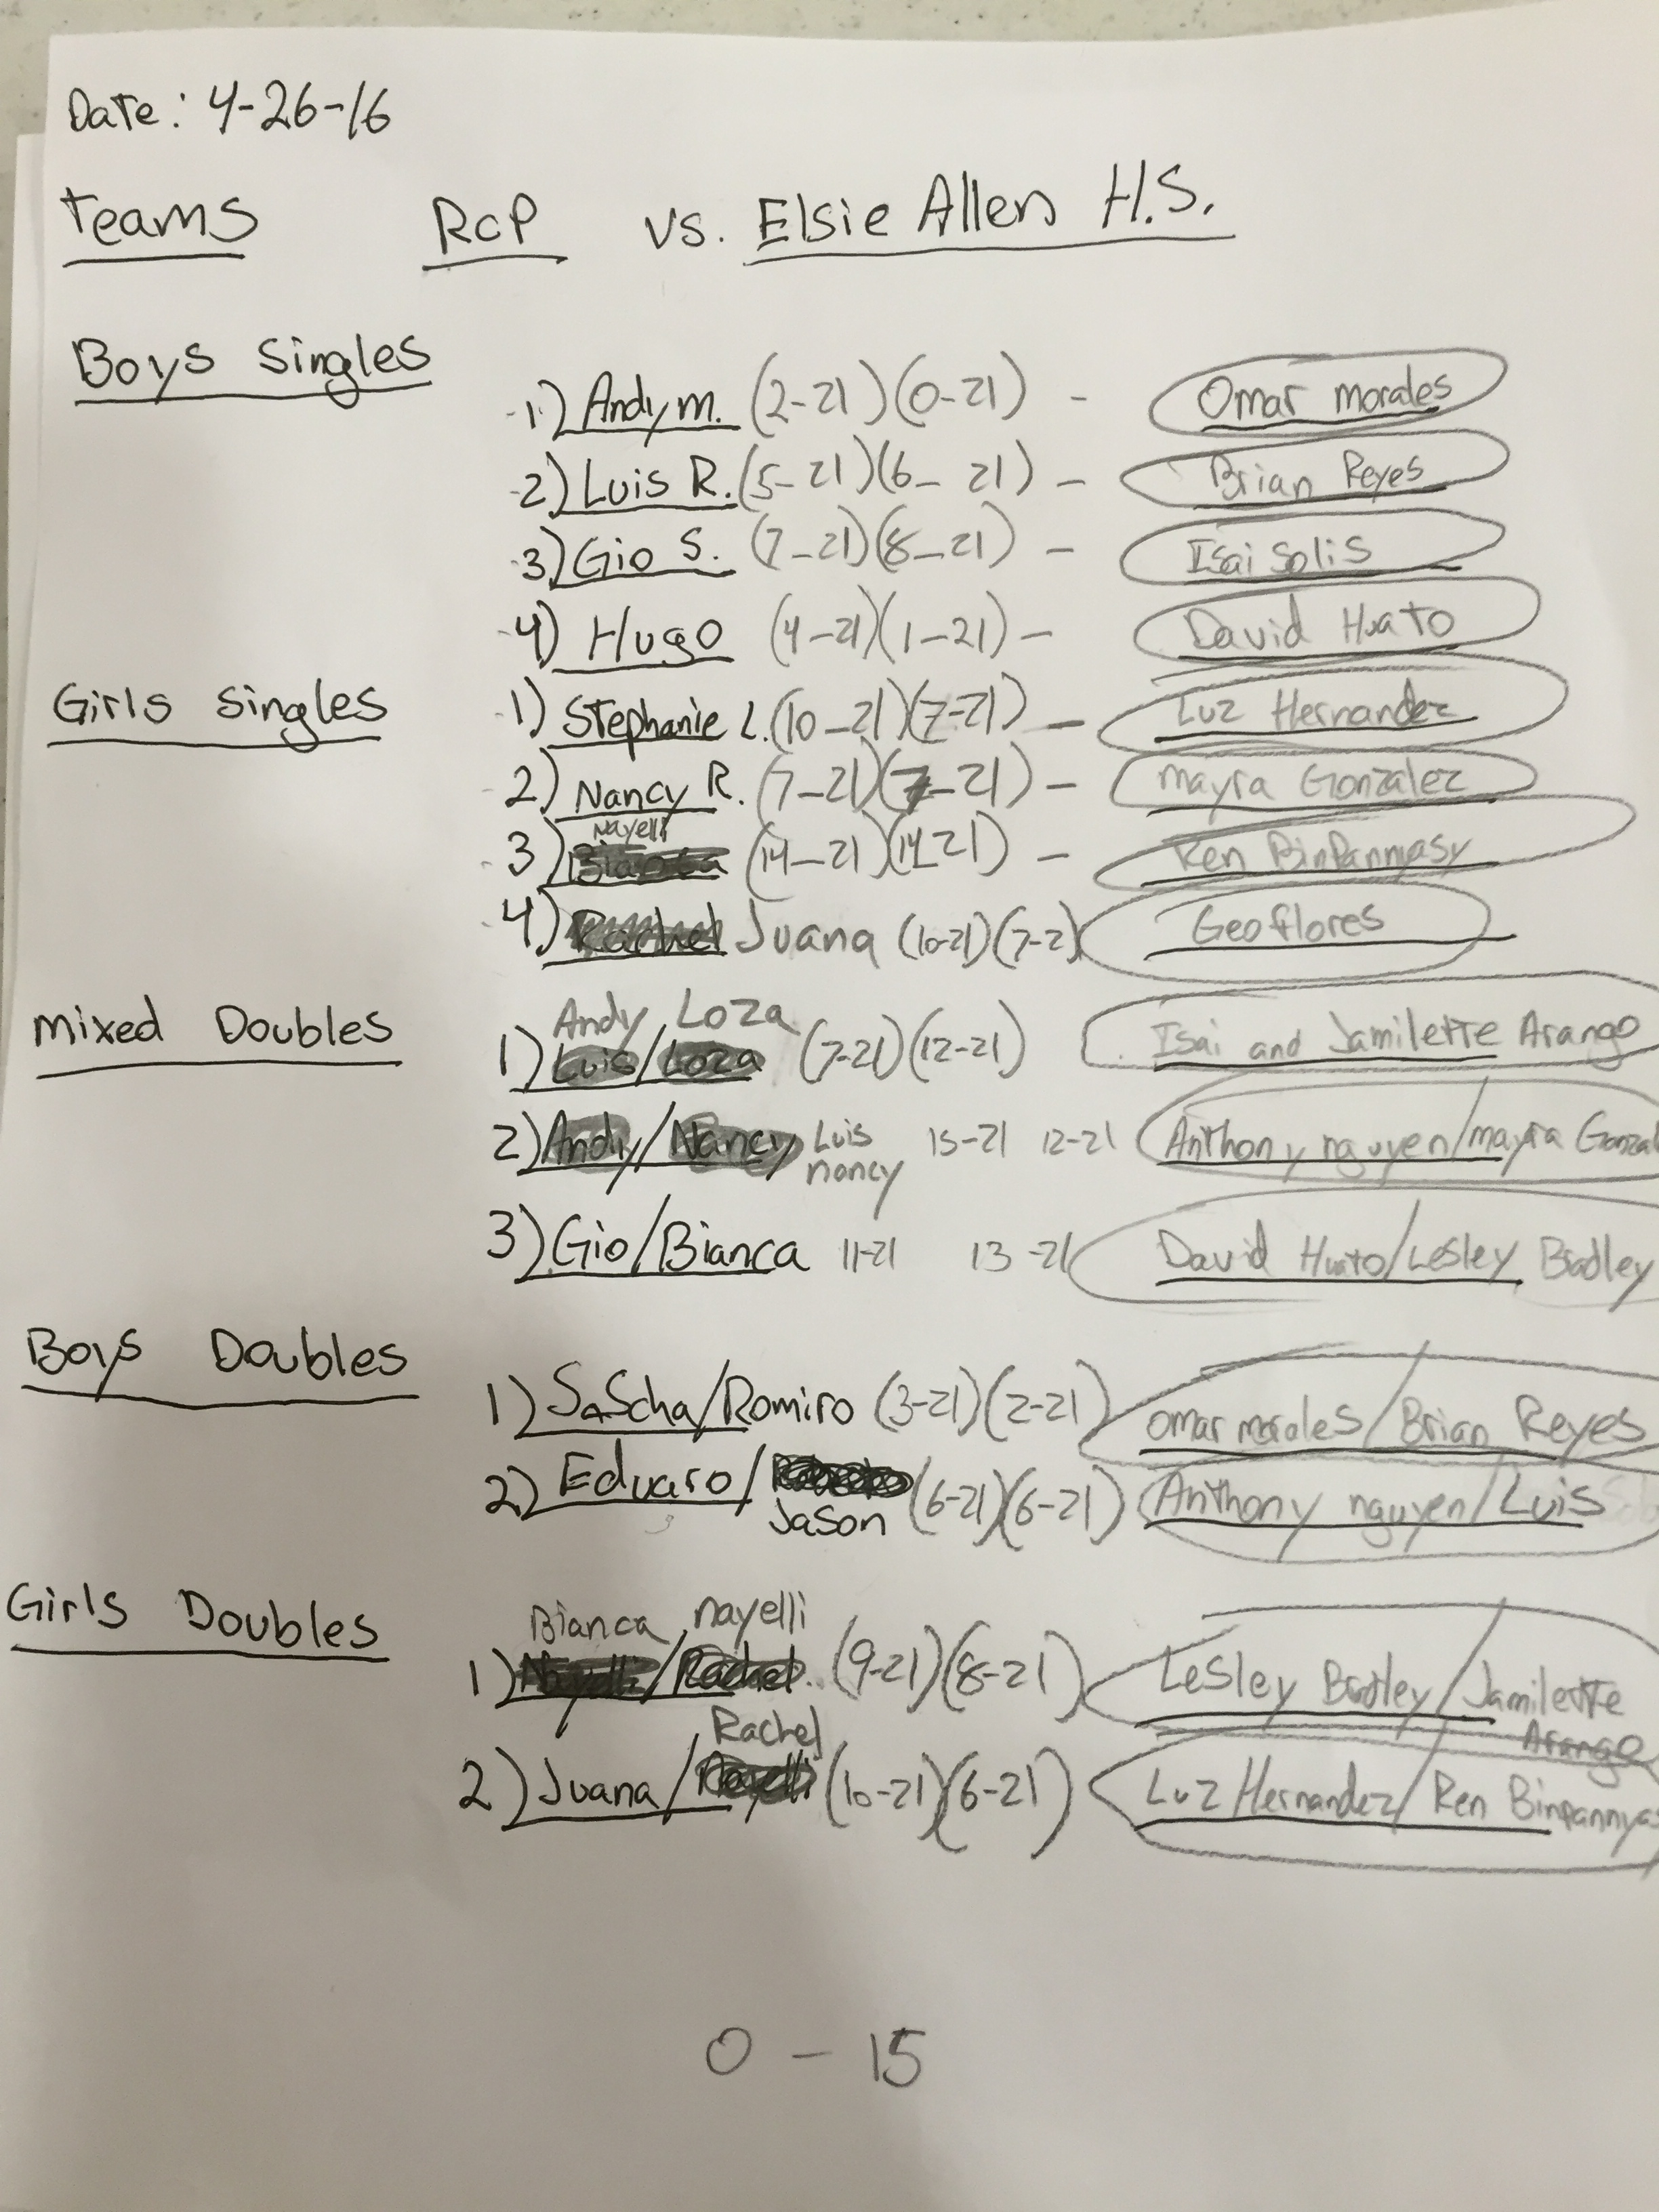 Date: 4-26-16
Teams RCP vs. Elsie Allen H.S.
Boys Singles
1) Andy m. (2-21)(0-21) - Omar morales
2) Luis R. (5-21)(6-21) - Brian Reyes
3) Gio S. (7-21)(8-21) - Isai Solis
4) Hugo (4-21)(1-21) - David Huato
Girls Singles
1) Stephanie L. (10-21)(7-21) - Luz Hernandez
2) Nancy R. (7-21)(7-21) - mayra Gonzalez
Nayelli
3) Bianca (14-21)(14-21) - Ren Binpannyasy
4) Rachel Juana (10-21)(7-2) Geo flores
Mixed Doubles
Andy Loza
1) Luis/Loza (7-21)(12-21) Isai and Jamilette Arango
2) Andy/Nancy Luis nancy 15-21 12-21 Anthony nguyen/mayra Gonzal
3) Gio/Bianca 11-21 13-21 David Huato/Lesley Badley
Boys Doubles
1) SaScha/Romiro (3-21)(2-21) omar morales/Brian Reyes
2) Eduaro/ (6-21)(6-21) Anthony nguyen/Luis
Jason
Girls Doubles
Bianca nayelli
1) Nayelli/Rachel (9-21)(8-21) Lesley Badley/Jamilette
Arango
Rachel
2) Juana/Nayelli (10-21)(6-21) Luz Hernandez/Ren Binpannyas
0 - 15